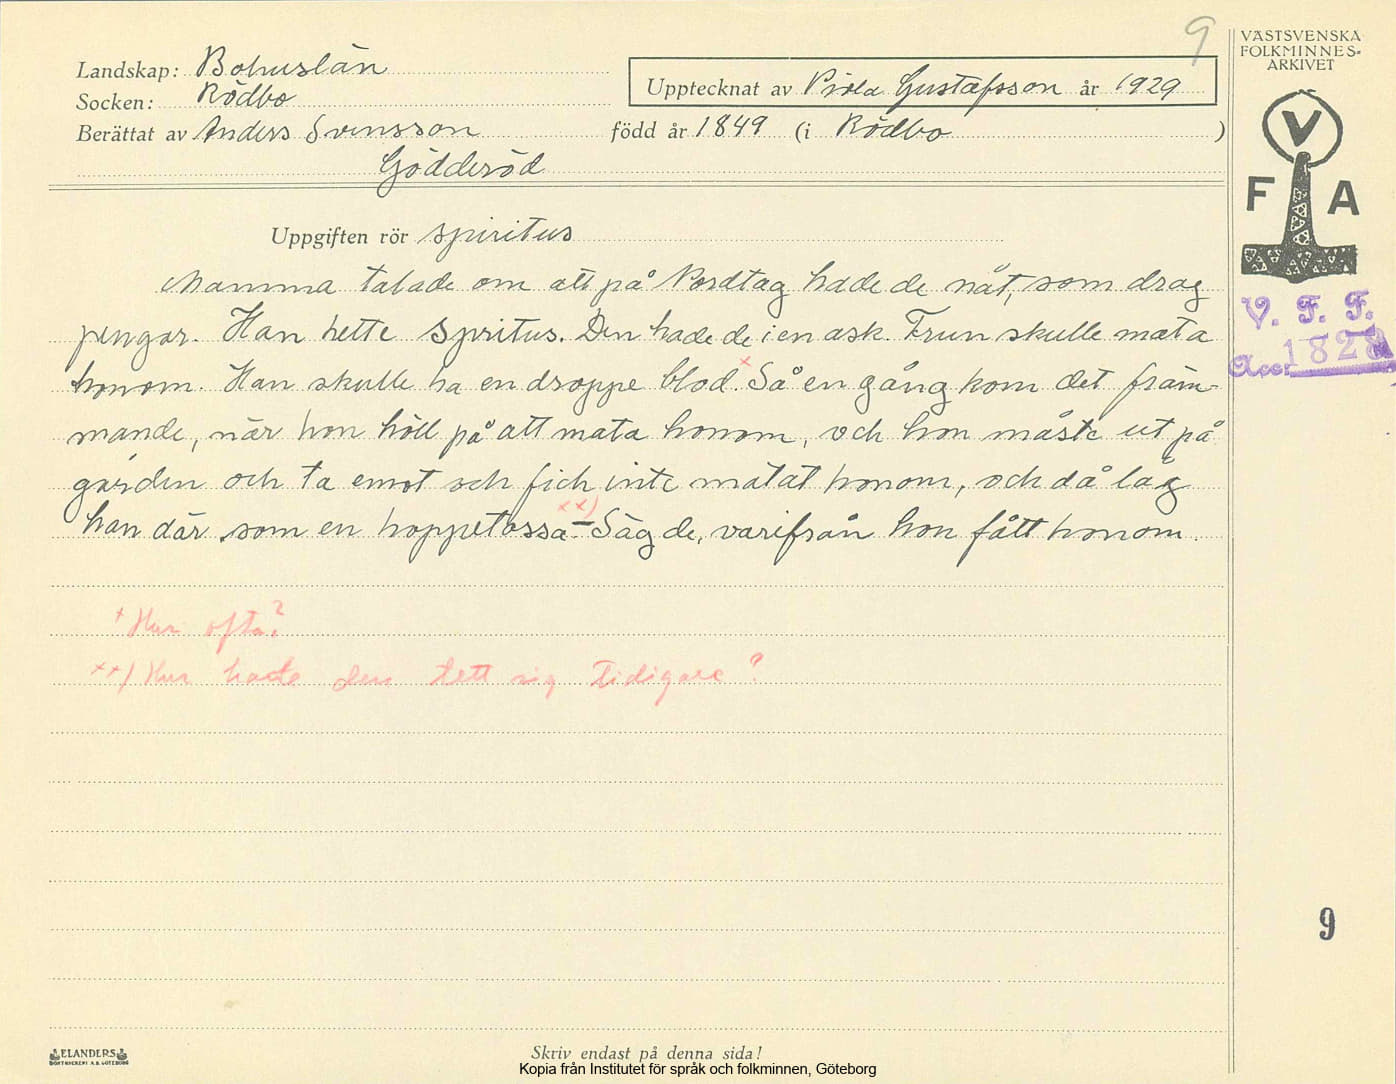 9
VÄSTSVENSKA
FOLKMINNES-
ARKIVET
Landskap: Bohuslän
Socken: Rödbo
Upptecknat av Gustafsson år 1929
Berättat av Anders Svensson född år 1849 (i Rödbo )
Gödderöd
V
F A
Uppgiften rör spiritus
Mamma talade om att på Nordtag hade de nåt, som drog
pengar. Han hette Spritus. Den hade de i en ask. Frun skulle mata
honom. Han skulle ha en droppe blod.× Så en gång kom det främ-
mande, när hon höll på att mata honom, och hon måste ut på
gården och ta emot och fick inte matat honom, och då låg
han där som en hoppetossa.××) – Säg de, varifrån hon fått honom.
V. F. F.
Acc: 1828
× Hur ofta?
××) Hur hade den tett sig tidigare?
9
ELANDERS
BOKTRYCKERI A.B. GÖTEBORG
Skriv endast på denna sida!
Kopia från Institutet för språk och folkminnen, Göteborg